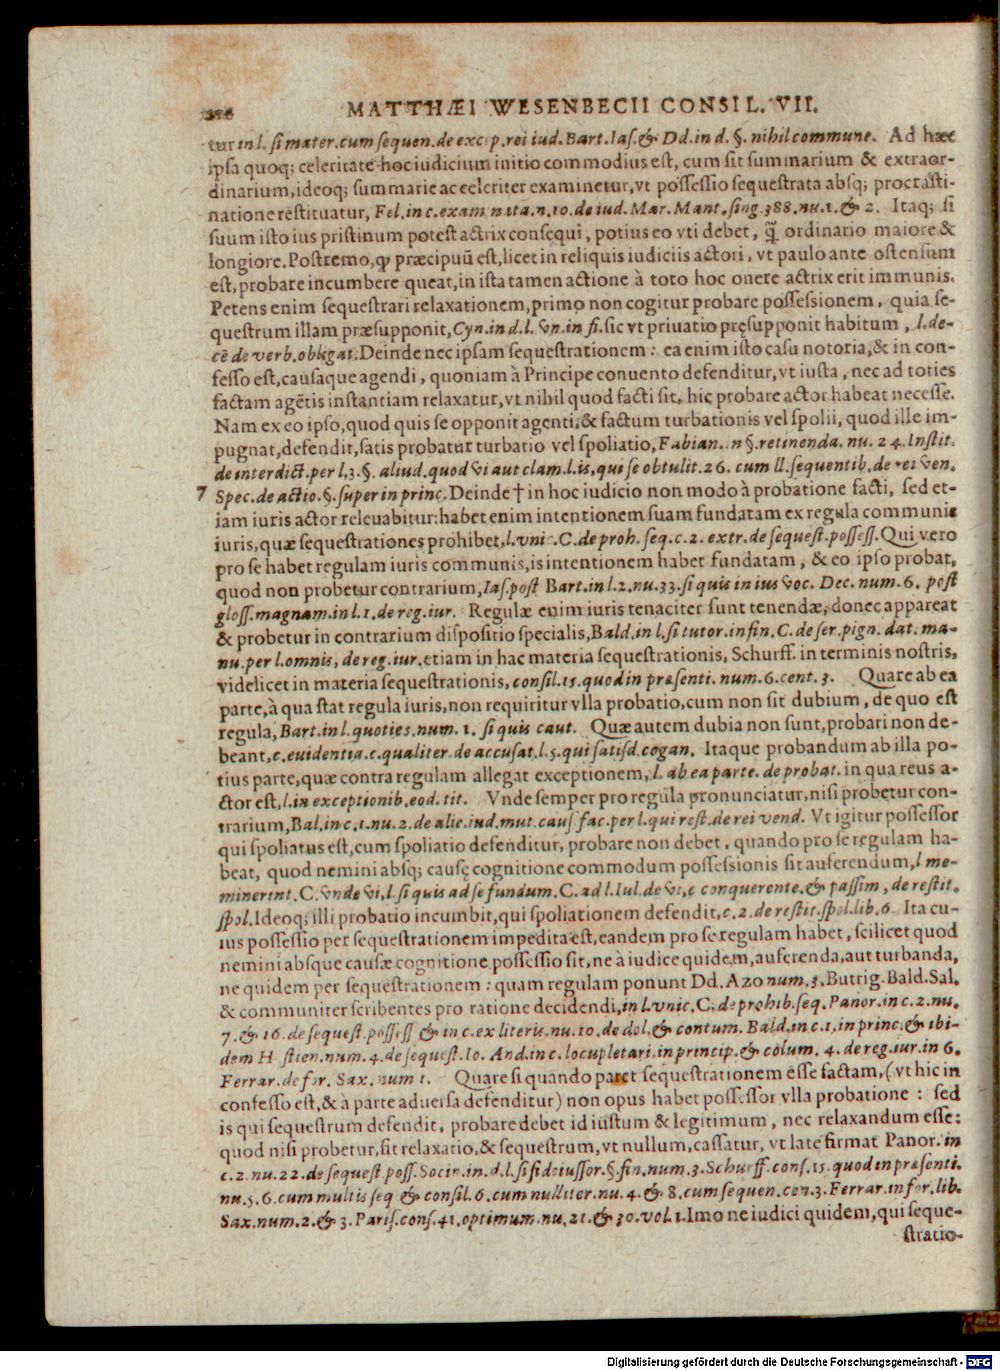 MATTHÆI WESENBECII CONSIL. VII.
tur in l. si mater. cum sequen. de excep. rei iud. Bart. Ias. & Dd. in d. §. nihil commune. Ad hæc
ipsa quoq; celeritate hoc iudicium initio commodius est, cum sit summarium & extraor-
dinarium, ideoq; summarie ac celeriter examinetur, vt possessio sequestrata absq; procrasti-
natione restituatur, Fel. in c. exam nata. n. 10. de iud. Mar. Mant. sing. 388. nu. 1. & 2. Itaq; si
suum isto ius pristinum potest actrix consequi, potius eo vti debet, q̃ ordinario maiore &
longiore. Postremo, ꝙ præcipuũ est, licet in reliquis iudiciis actori, vt paulo ante ostensum
est, probare incumbere queat, in ista tamen actione à toto hoc onere actrix erit immunis.
Petens enim sequestrari relaxationem, primo non cogitur probare possessionem, quia se-
questrum illam præsupponit, Cyn. in d. l. vn. in fi. sic vt priuatio pręsupponit habitum, l. de-
cẽ de verb. obligat. Deinde nec ipsam sequestrationem: ea enim isto casu notoria, & in con-
fesso est, causaque agendi, quoniam à Principe conuento defenditur, vt iusta, nec ad toties
factam agẽtis instantiam relaxatur, vt nihil quod facti sit, hic probare actor habeat necesse.
Nam ex eo ipso, quod quis se opponit agenti, & factum turbationis vel spolii, quod ille im-
pugnat, defendit, satis probatur turbatio vel spoliatio, Fabian. in §. retinenda. nu. 24. Instit.
de interdict. per l. 3. §. aliud. quod vi aut clam. l. is, qui se obtulit. 26. cum ll. sequentib. de rei ven.
7 Spec. de actio. §. super in princ. Deinde † in hoc iudicio non modo à probatione facti, sed et-
iam iuris actor releuabitur: habet enim intentionem suam fundatam ex regula communis
iuris, quæ sequestrationes prohibet, l. vnic. C. de proh. seq. c. 2. extr. de sequest. possess. Qui vero
pro se habet regulam iuris communis, is intentionem habet fundatam, & eo ipso probat,
quod non probetur contrarium, Ias. post Bart. in l. 2. nu. 33. si quis in ius voc. Dec. num. 6. post
gloss. magnam. in l. 1. de reg. iur. Regulæ enim iuris tenaciter sunt tenendæ, donec appareat
& probetur in contrarium dispositio specialis, Bald. in l. si tutor. in fin. C. de ser. pign. dat. ma-
nu. per l. omnis, de reg. iur. etiam in hac materia sequestrationis, Schurff. in terminis nostris,
videlicet in materia sequestrationis, consil. 15. quod in præsenti. num. 6. cent. 3. Quare ab ea
parte, à qua stat regula iuris, non requiritur vlla probatio, cum non sit dubium, de quo est
regula, Bart. in l. quoties. num. 1. si quis caut. Quæ autem dubia non sunt, probari non de-
beant, c. euidentia. c. qualiter. de accusat. l. 5. qui satisd. cogan. Itaque probandum ab illa po-
tius parte, quæ contra regulam allegat exceptionem, l. ab ea parte. de probat. in qua reus a-
ctor est, l. in exceptionib. eod. tit. Vnde semper pro regula pronunciatur, nisi probetur con-
trarium, Bal. in c. 1. nu. 2. de alie. iud. mut. caus fac. per l. qui rest. de rei vend. Vt igitur possessor
qui spoliatus est, cum spoliatio defenditur, probare non debet, quando pro se regulam ha-
beat, quod nemini absq; causę cognitione commodum possessionis sit auferendum, l me-
minerint. C. vnde vi, l. si quis ad se fundum. C. ad l. Iul. de vi, c conquerente. & passim, de restit.
spol. Ideoq; illi probatio incumbit, qui spoliationem defendit, c. 2. de restit. spol. lib. 6. Ita cu-
ius possessio per sequestrationem impedita est, eandem pro se regulam habet, scilicet quod
nemini absque causæ cognitione possessio sit, ne à iudice quidem, auferenda, aut turbanda,
ne quidem per sequestrationem: quam regulam ponunt Dd. Azo num. 3. Butrig. Bald. Sal.
& communiter scribentes pro ratione decidendi, in l. vnic. C. de prohib. seq. Panor. in c. 2. nu.
7. & 16. de sequest. possess & in c. ex literis. nu. 10. de dol. & contum. Bald. in c. 1. in princ. & ibi-
dem H stien. num. 4. de sequest. Io. And. in c. locupletari. in princip. & colum. 4. de reg. iur. in 6.
Ferrar. de for. Sax. num 1. Quare si quando paret sequestrationem esse factam, (vt hic in
confesso est, & à parte aduersa defenditur) non opus habet possessor vlla probatione: sed
is qui sequestrum defendit, probare debet id iustum & legitimum, nec relaxandum esse:
quod nisi probetur, fit relaxatio, & sequestrum, vt nullum, cassatur, vt late firmat Panor. in
c. 2. nu. 22. de sequest poss. Socin. in. d. l. si fideiussor. §. fin. num. 3. Schurff. cons. 15. quod in præsenti.
nu. 5. 6. cum multis seq & consil. 6. cum nulliter. nu. 4. & 8. cum sequen. cen. 3. Ferrar. in for. lib.
Sax. num. 2. & 3. Paris. cons. 41. optimum. nu. 21. & 30. vol. 1. Imo ne iudici quidem, qui seque-
stratio-
Digitalisierung gefördert durch die Deutsche Forschungsgemeinschaft - DFG